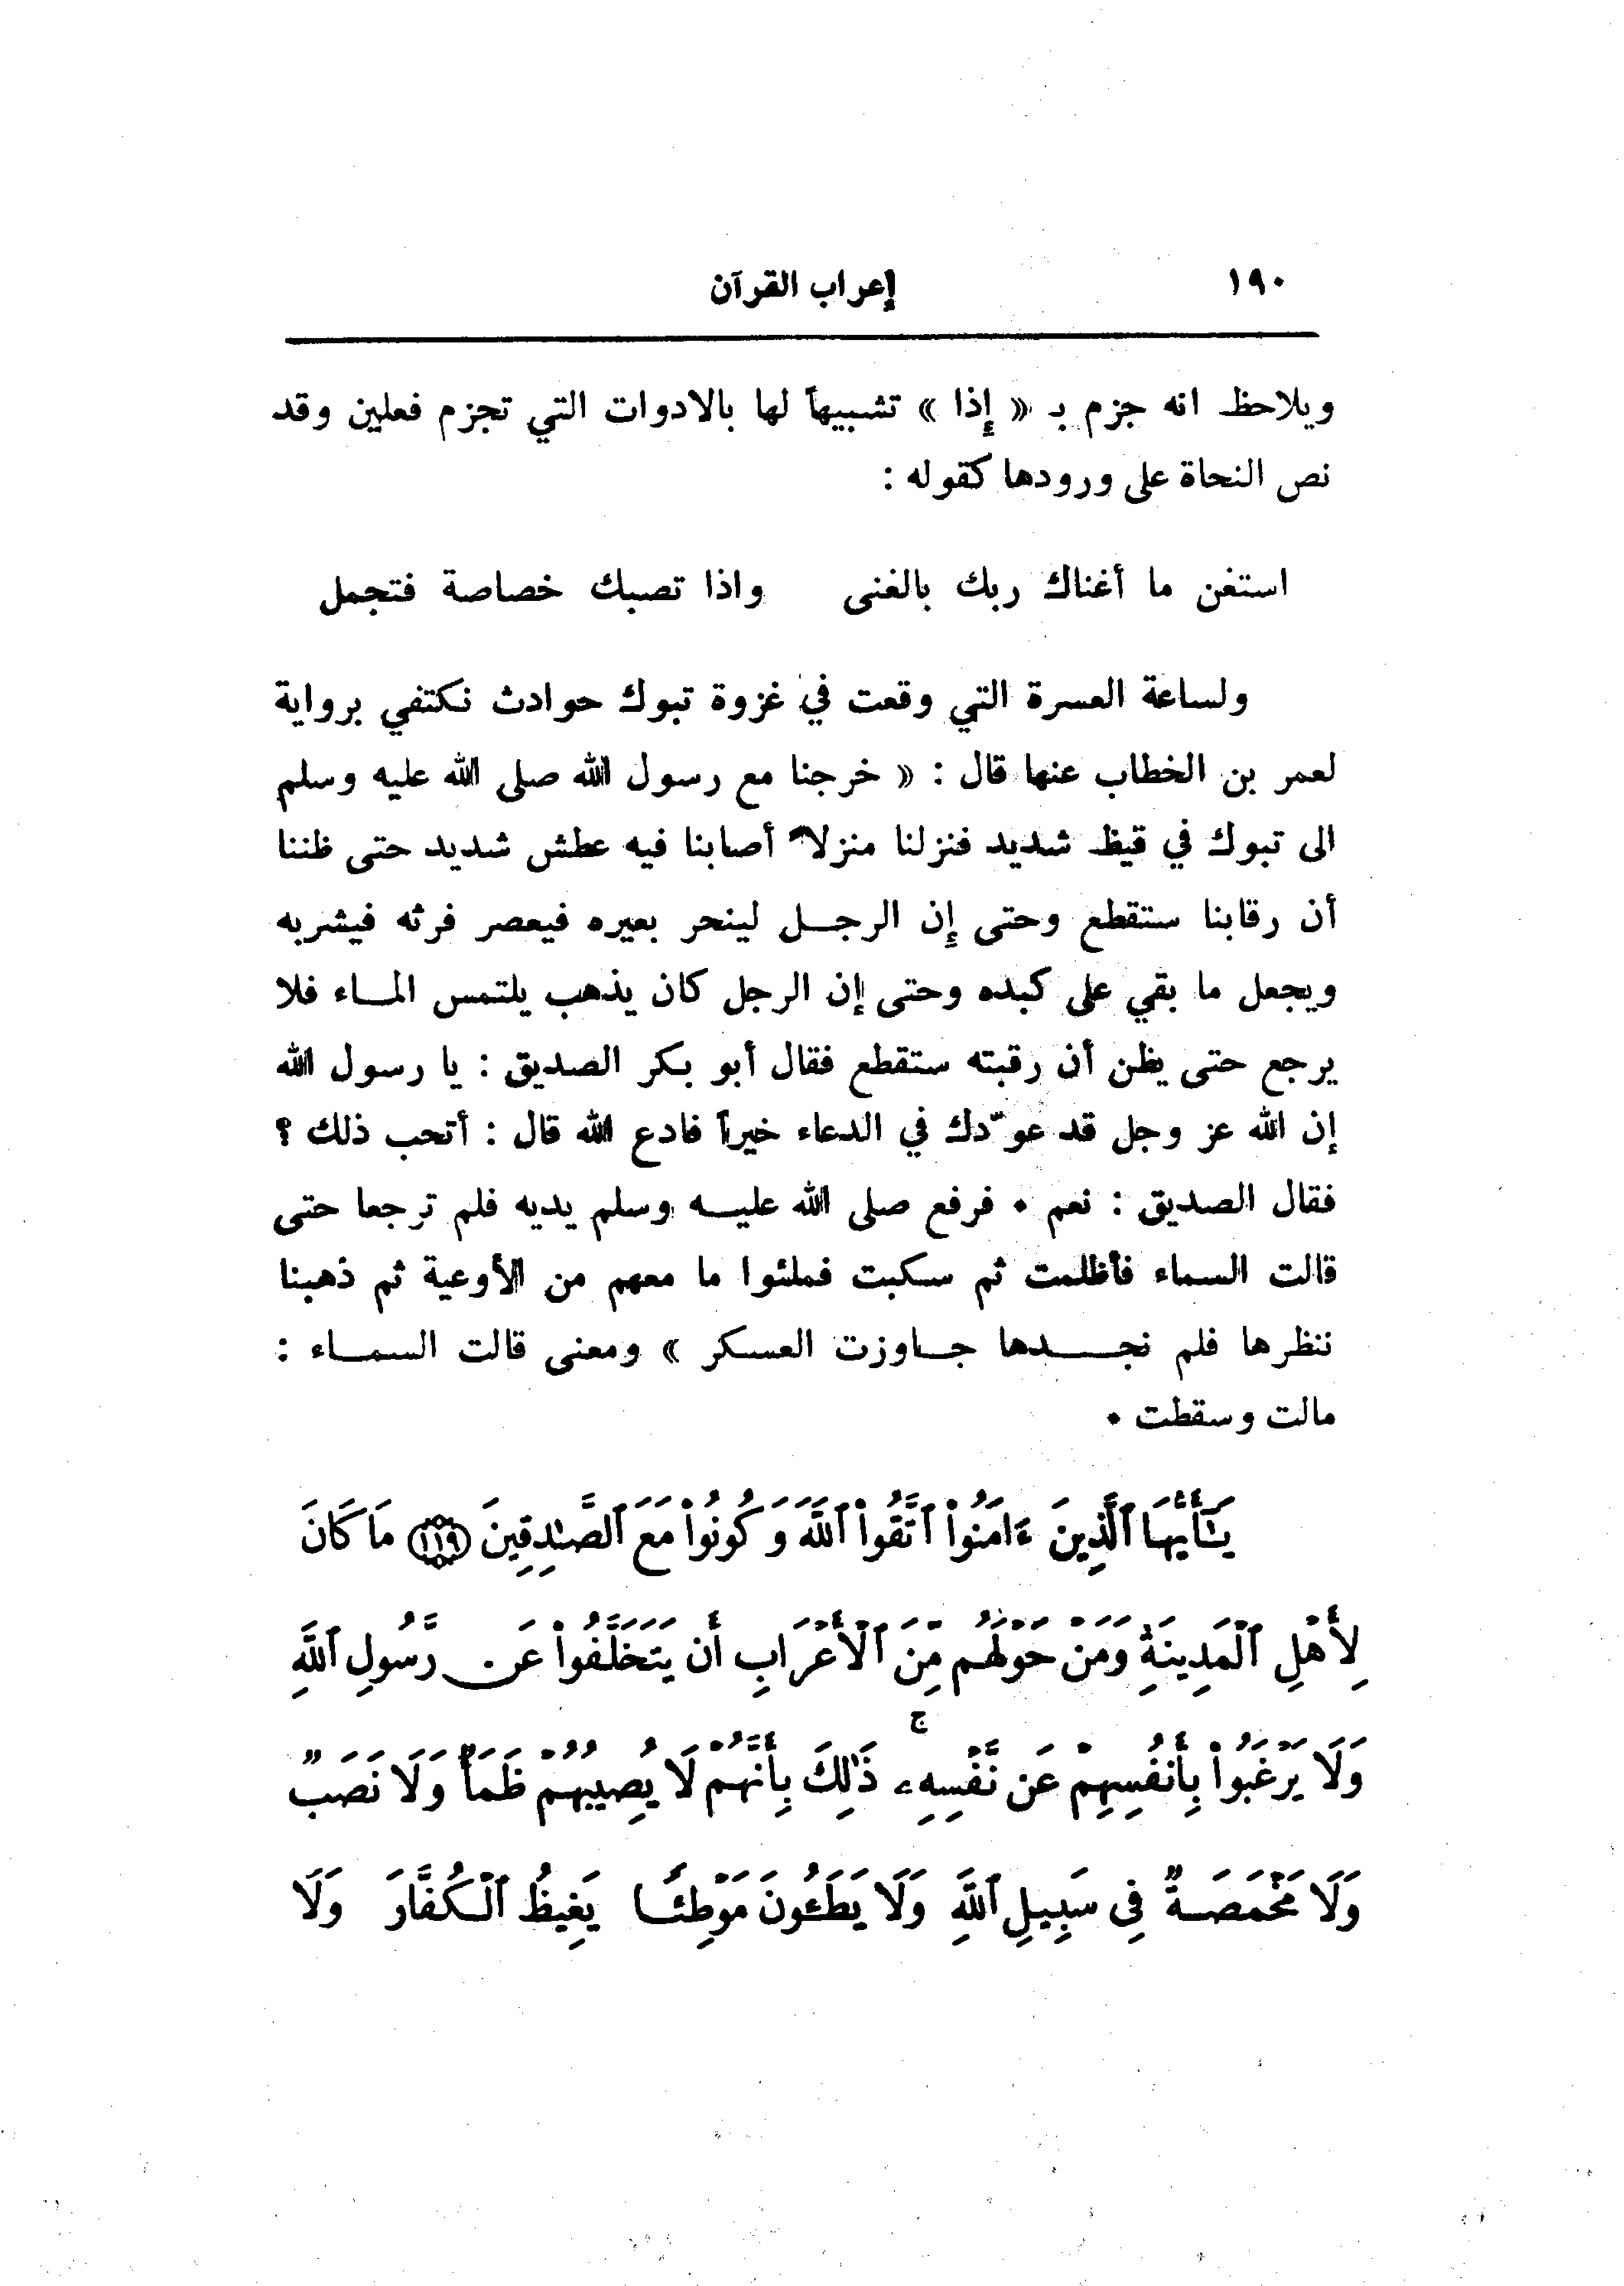 ١٩٠ إعراب القرآن
ويلاحظ انه جزم بـ « إذا » تشبيهاً لها بالادوات التي تجزم فعلين وقد
نص النحاة على ورودها كقوله :
استغن ما أغناك ربك بالغنى واذا تصبك خصاصة فتجمل
ولساعة العسرة التي وقعت في غزوة تبوك حوادث نكتفي برواية
لعمر بن الخطاب عنها قال : « خرجنا مع رسول الله صلى الله عليه وسلم
الى تبوك في قيظ شديد فنزلنا منزلاً أصابنا فيه عطش شديد حتى ظننا
أن رقابنا ستتقطع وحتى إن الرجل لينحر بعيره فيعصر فرثه فيشربه
ويجعل ما بقي على كبده وحتى إن الرجل كان يذهب يلتمس الماء فلا
يرجع حتى يظن أن رقبته ستقطع فقال أبو بكر الصديق : يا رسول الله
إن الله عز وجل قد عوّدك في الدعاء خيراً فادع الله قال : أتحب ذلك ؟
فقال الصديق : نعم ٠ فرفع صلى الله عليه وسلم يديه فلم ترجعا حتى
قالت السماء فأظلمت ثم سكبت فملئوا ما معهم من الأوعية ثم ذهبنا
ننظرها فلم نجدها جاوزت العسكر » ومعنى قالت السماء :
مالت وسقطت ٠
يَـٰٓأَيُّهَا ٱلَّذِينَ ءَامَنُوا۟ ٱتَّقُوا۟ ٱللَّهَ وَكُونُوا۟ مَعَ ٱلصَّـٰدِقِينَ ﴿١١٩﴾ مَا كَانَ
لِأَهْلِ ٱلْمَدِينَةِ وَمَنْ حَوْلَهُم مِّنَ ٱلْأَعْرَابِ أَن يَتَخَلَّفُوا۟ عَن رَّسُولِ ٱللَّهِ
وَلَا يَرْغَبُوا۟ بِأَنفُسِهِمْ عَن نَّفْسِهِۦ ۚ ذَٰلِكَ بِأَنَّهُمْ لَا يُصِيبُهُمْ ظَمَأٌ وَلَا نَصَبٌ
وَلَا مَخْمَصَةٌ فِى سَبِيلِ ٱللَّهِ وَلَا يَطَـُٔونَ مَوْطِئًا يَغِيظُ ٱلْكُفَّارَ وَلَا